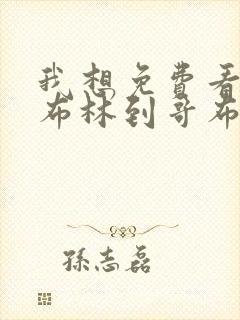 我想免费看
布林到哥布
孫志磊